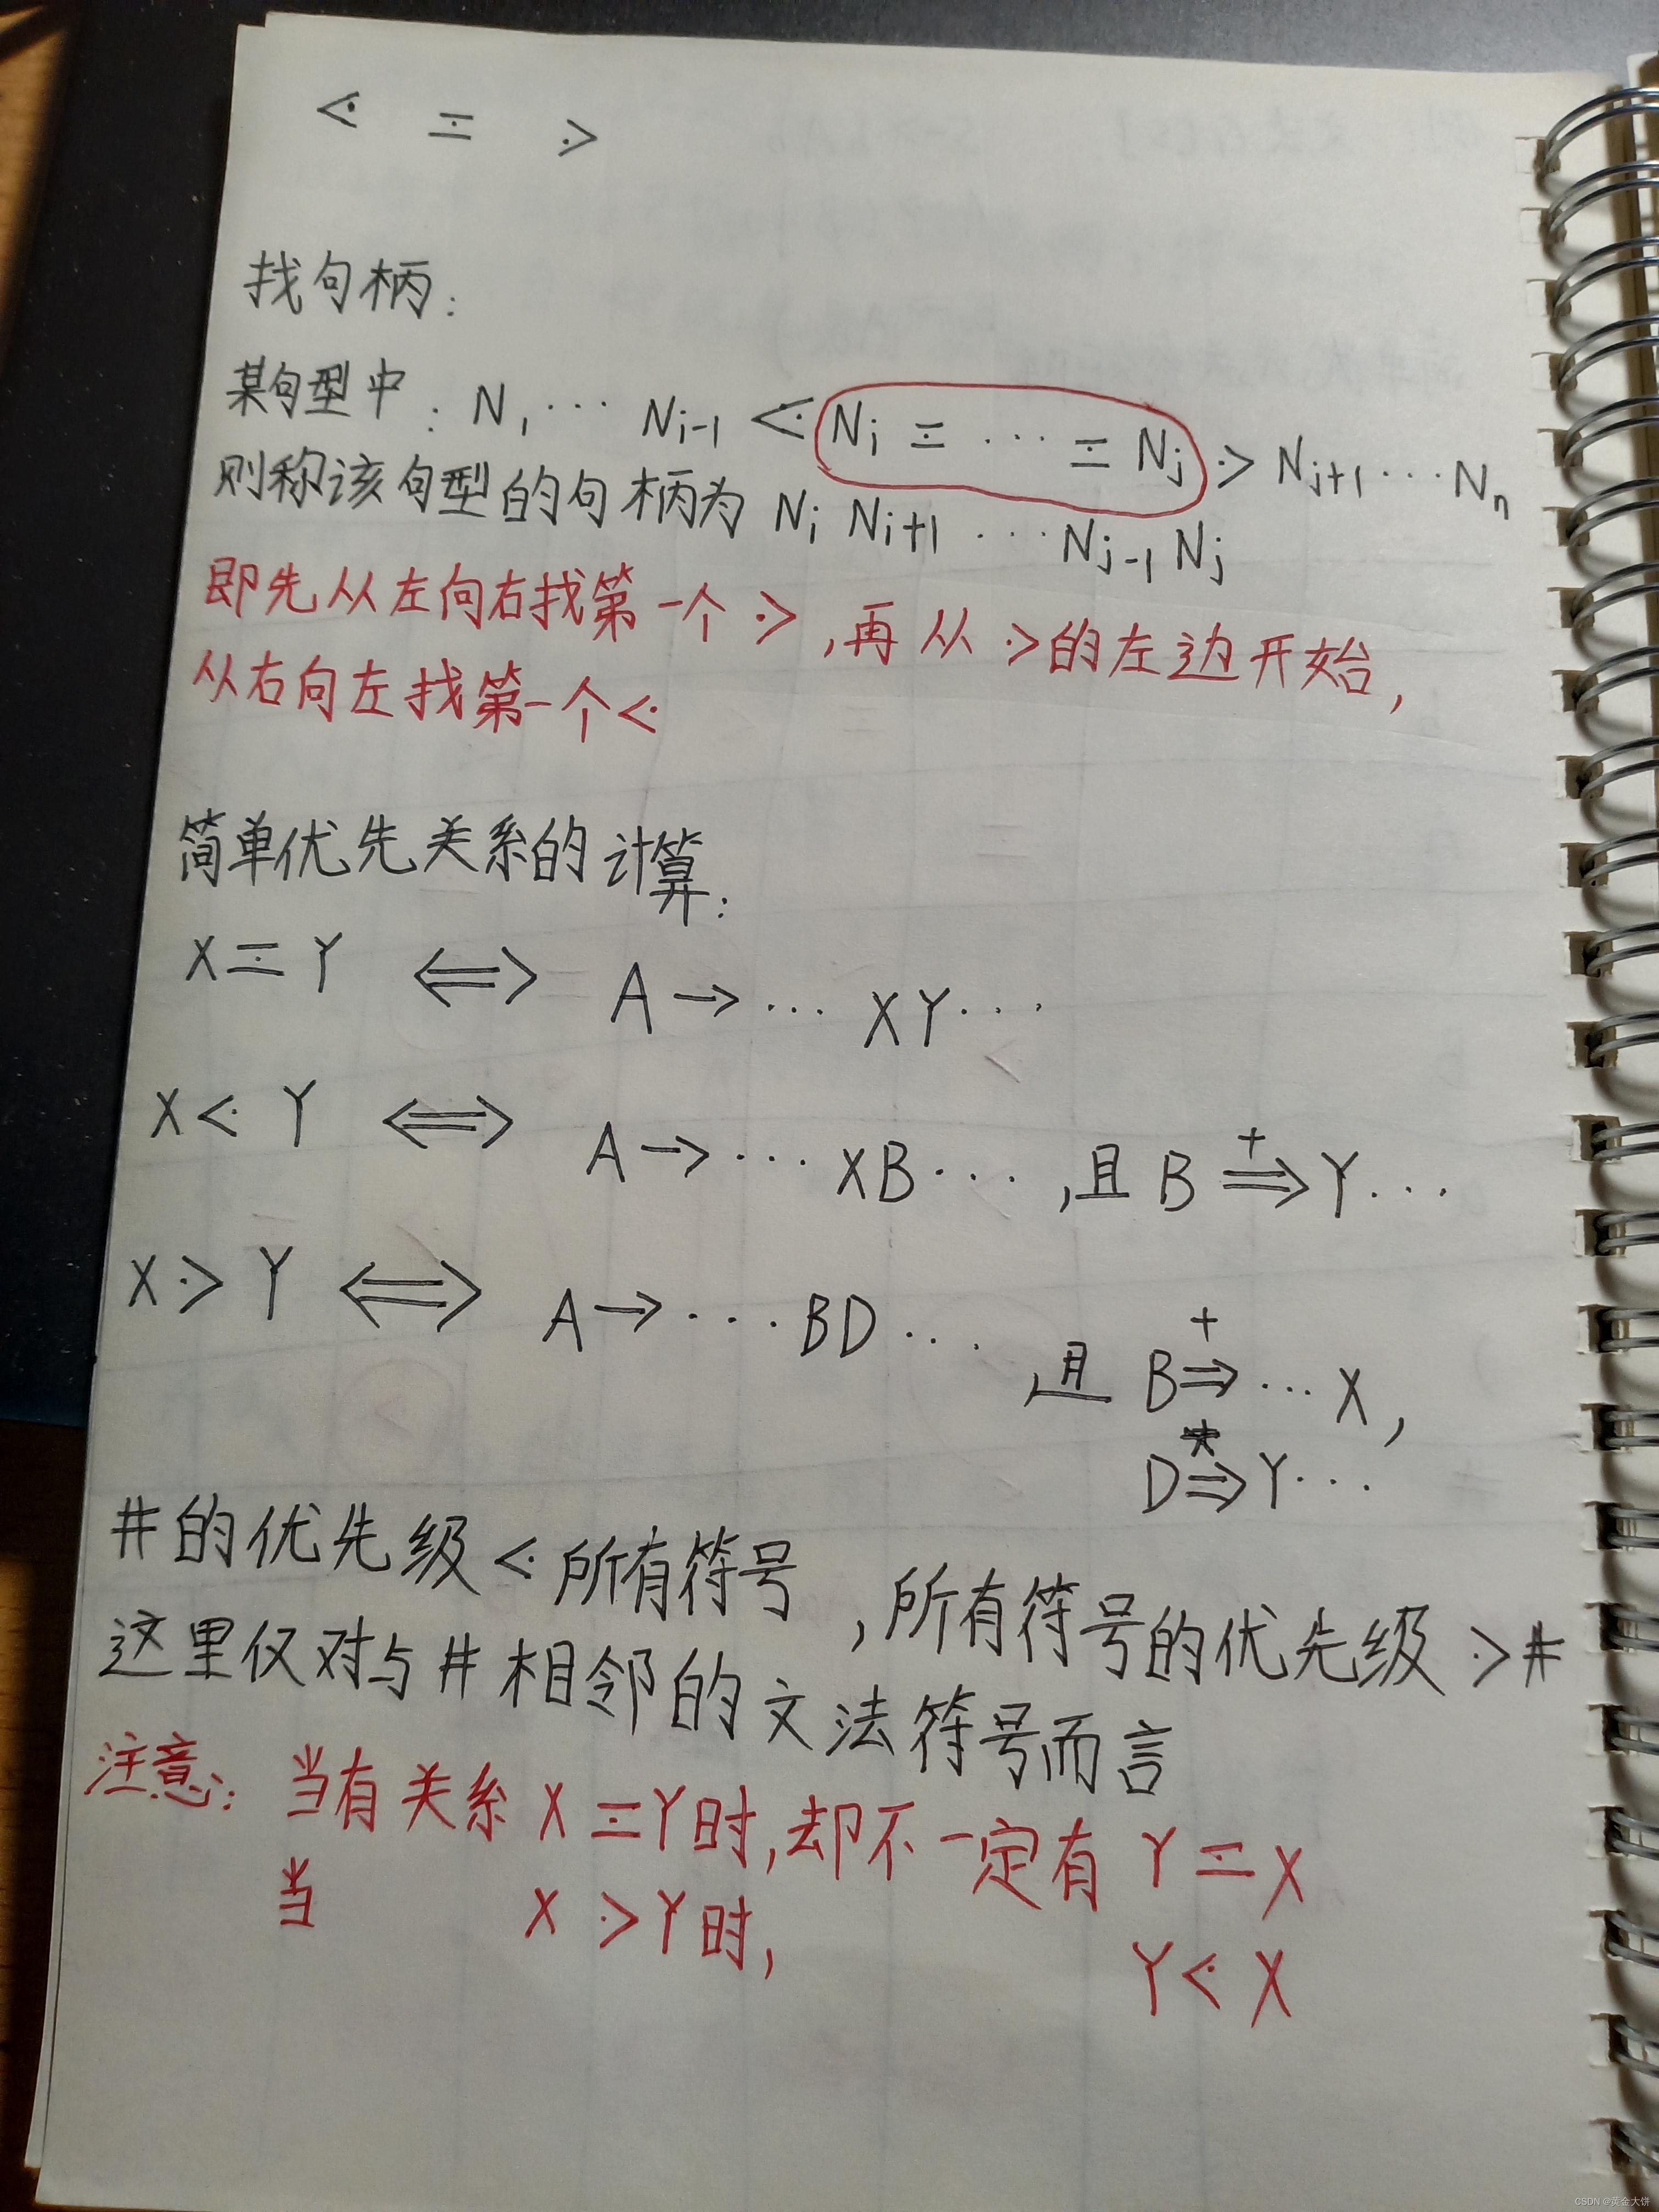 ⋖ ≐ ⋗
找句柄:
某句型中: N₁ ⋯ Nᵢ₋₁ ⋖ Nᵢ ≐ ⋯ ≐ Nⱼ ⋗ Nⱼ₊₁ ⋯ Nₙ
则称该句型的句柄为 Nᵢ Nᵢ₊₁ ⋯ Nⱼ₋₁ Nⱼ
即先从左向右找第一个⋗,再从⋗的左边开始,
从右向左找第一个⋖
简单优先关系的计算:
X ≐ Y ⟺ A → ⋯ XY ⋯
X ⋖ Y ⟺ A → ⋯ XB ⋯ ,且 B ⇒⁺ Y ⋯
X ⋗ Y ⟺ A → ⋯ BD ⋯ ,且 B ⇒⁺ ⋯ X ,
D ⇒* Y ⋯
#的优先级⋖所有符号,所有符号的优先级⋗#
这里仅对与#相邻的文法符号而言
注意: 当有关系 X ≐ Y时,却不一定有 Y ≐ X
当 X ⋗ Y时, Y ⋖ X
CSDN @黄金大饼